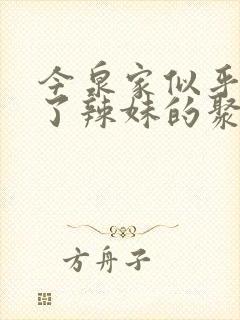 今泉家似乎
了辣妹的聚
方舟子